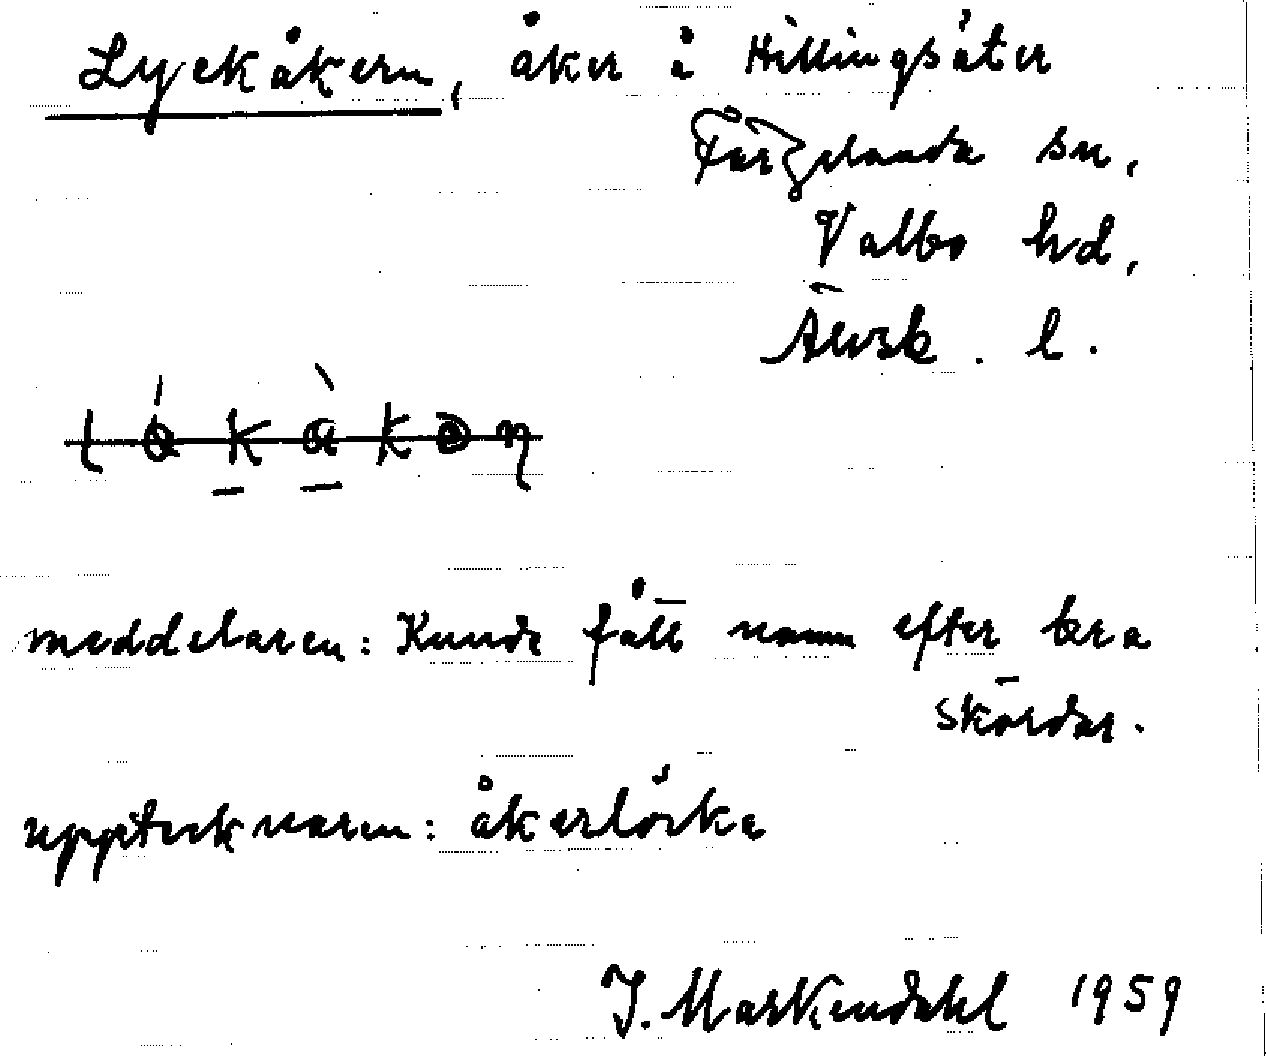 Lyckåkern, åker å Hillingsäter
Färgelanda sn,
Valbo hd,
Älvsb. l.
meddelaren: Kunde fått namn efter bra
skördar.
upptecknaren: åkerlöcka
J. Markendahl 1959